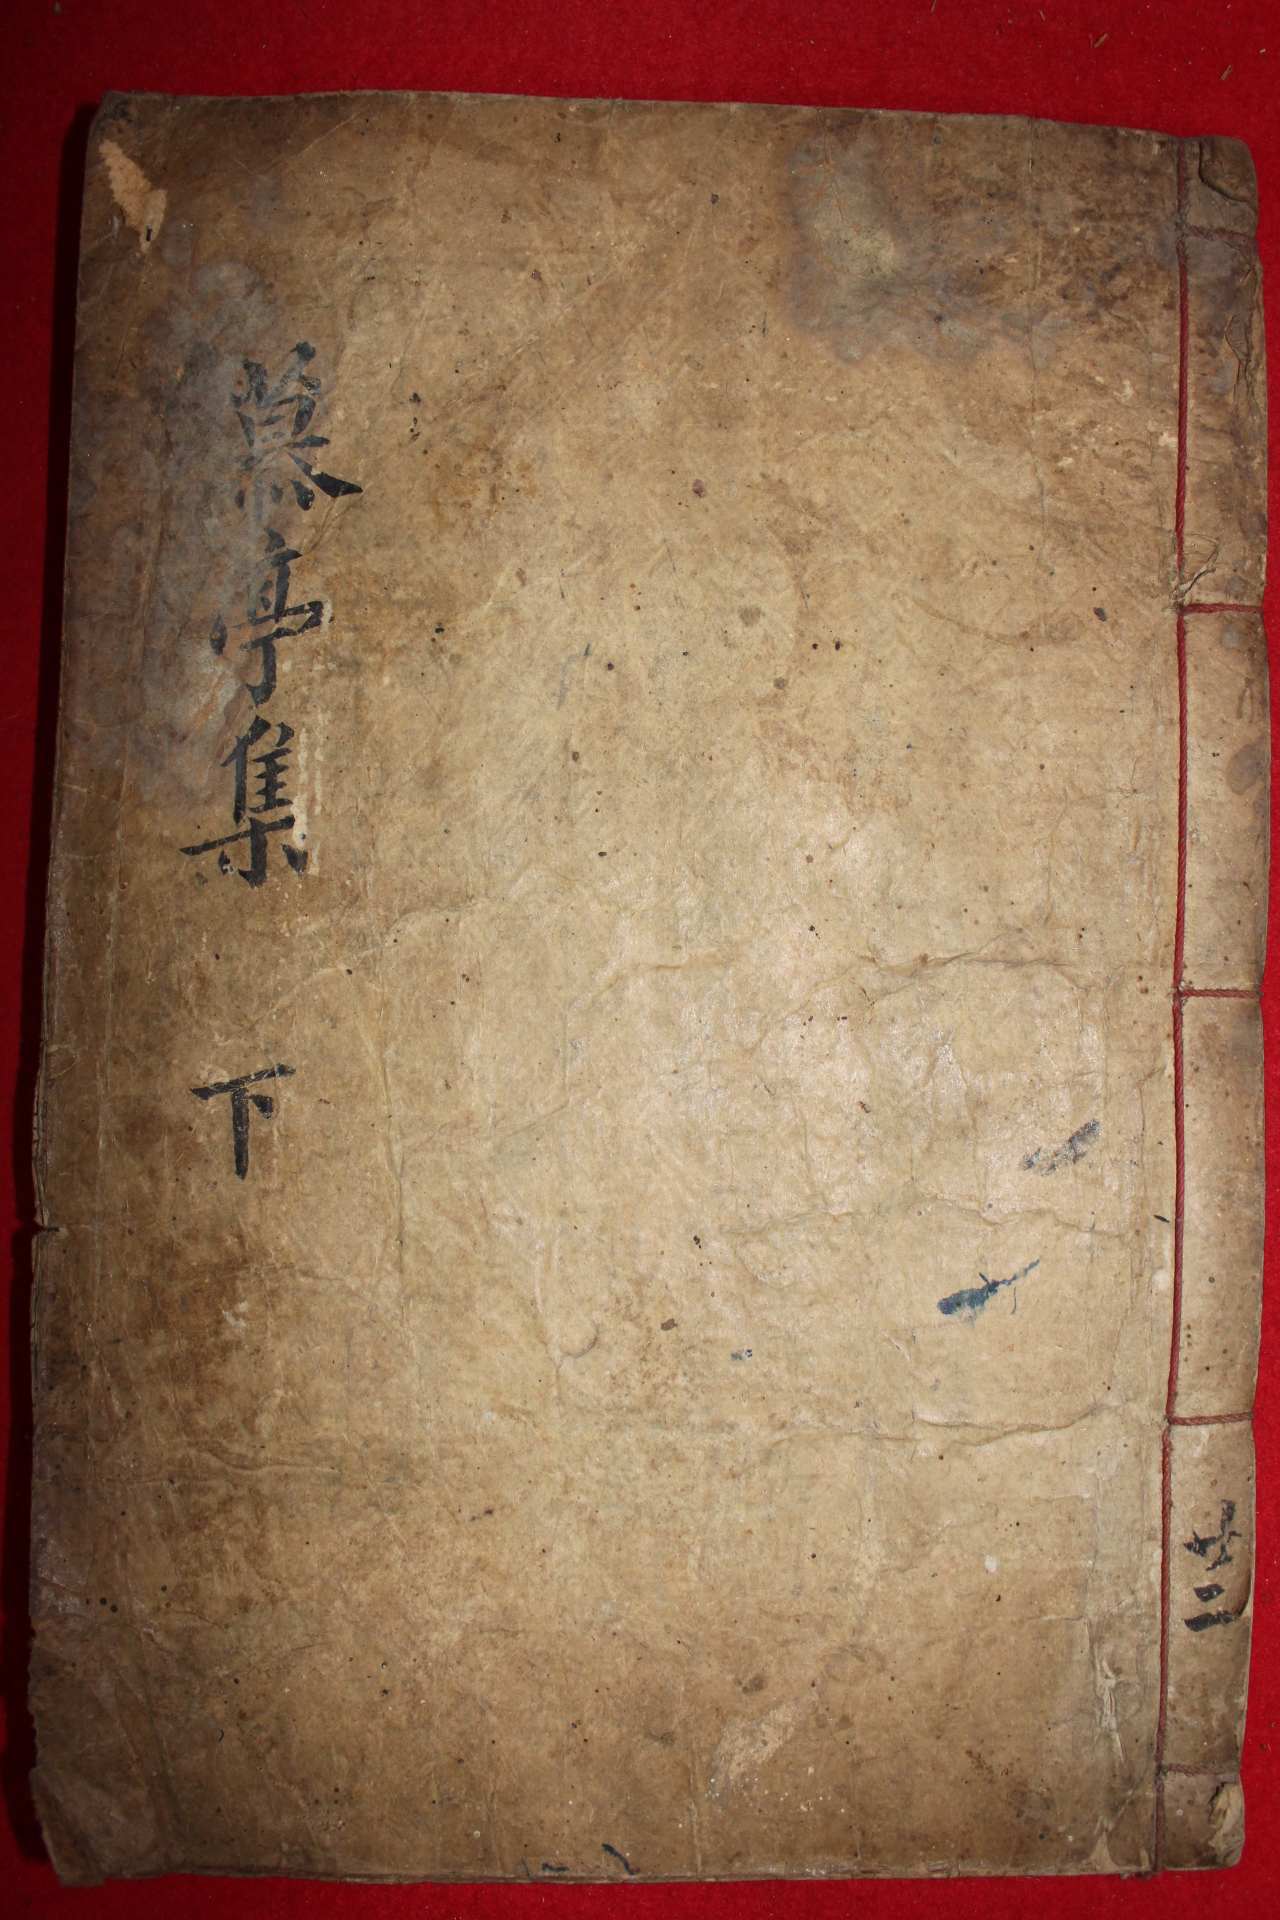 慕亭集 下
共二